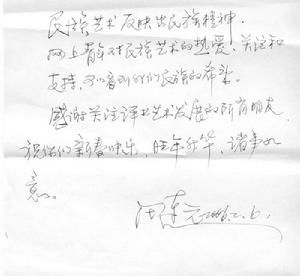 民族艺术反映出民族精神.
网上青年对民族艺术的热爱、关注和
支持,可以看到我们民族的希望.
感谢关注评书艺术发展的所有朋友,
祝你们新春快乐、旺年升华、诸事如
意。
田连元 2006.2.6.